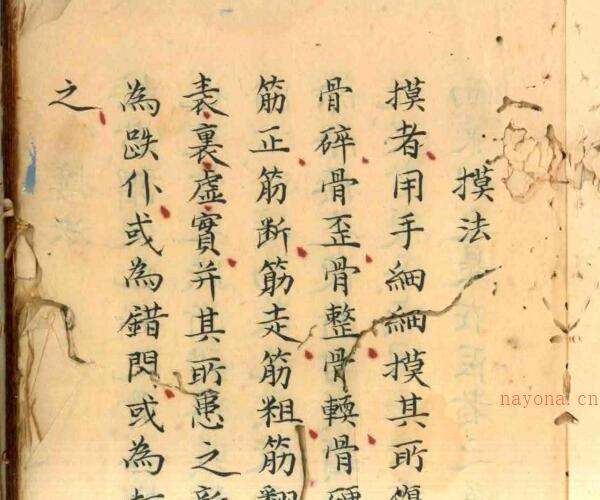 摸法
摸者用手細細摸其所
骨碎骨歪骨整骨轉骨
筋正筋斷筋走筋粗筋
表裏虛實并其所患之
為跌仆或為錯閃或為
之
nayona.cn